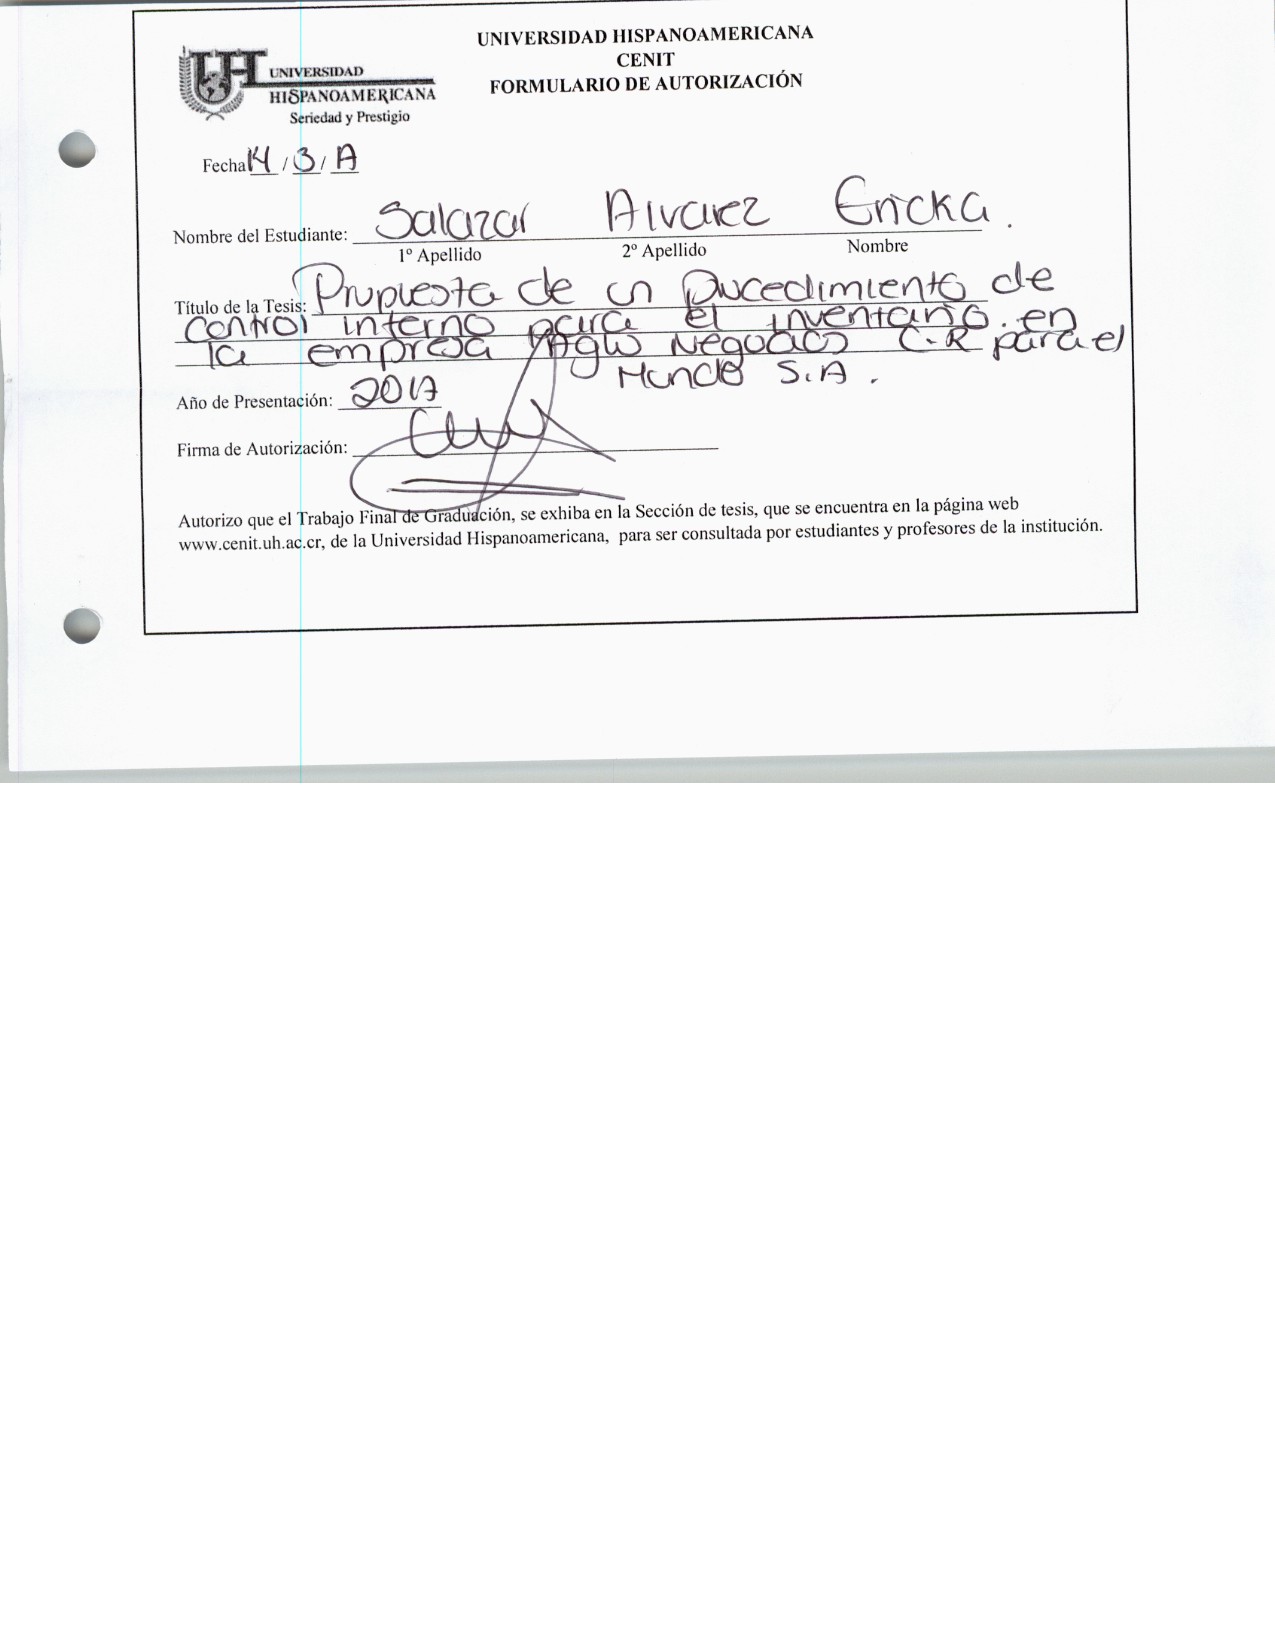 UNIVERSIDAD HISPANOAMERICANA
CENIT
FORMULARIO DE AUTORIZACIÓN
UH UNIVERSIDAD
HISPANOAMERICANA
Seriedad y Prestigio
Fecha 14 / 3 / 17
Nombre del Estudiante: Salazar Alvarez Ericka.
1º Apellido 2º Apellido Nombre
Título de la Tesis: Propuesta de un procedimiento de
control interno para el inventario en
la empresa Negocios C.R para el
Mundo S.A.
Año de Presentación: 2017
Firma de Autorización:
Autorizo que el Trabajo Final de Graduación, se exhiba en la Sección de tesis, que se encuentra en la página web
www.cenit.uh.ac.cr, de la Universidad Hispanoamericana, para ser consultada por estudiantes y profesores de la institución.